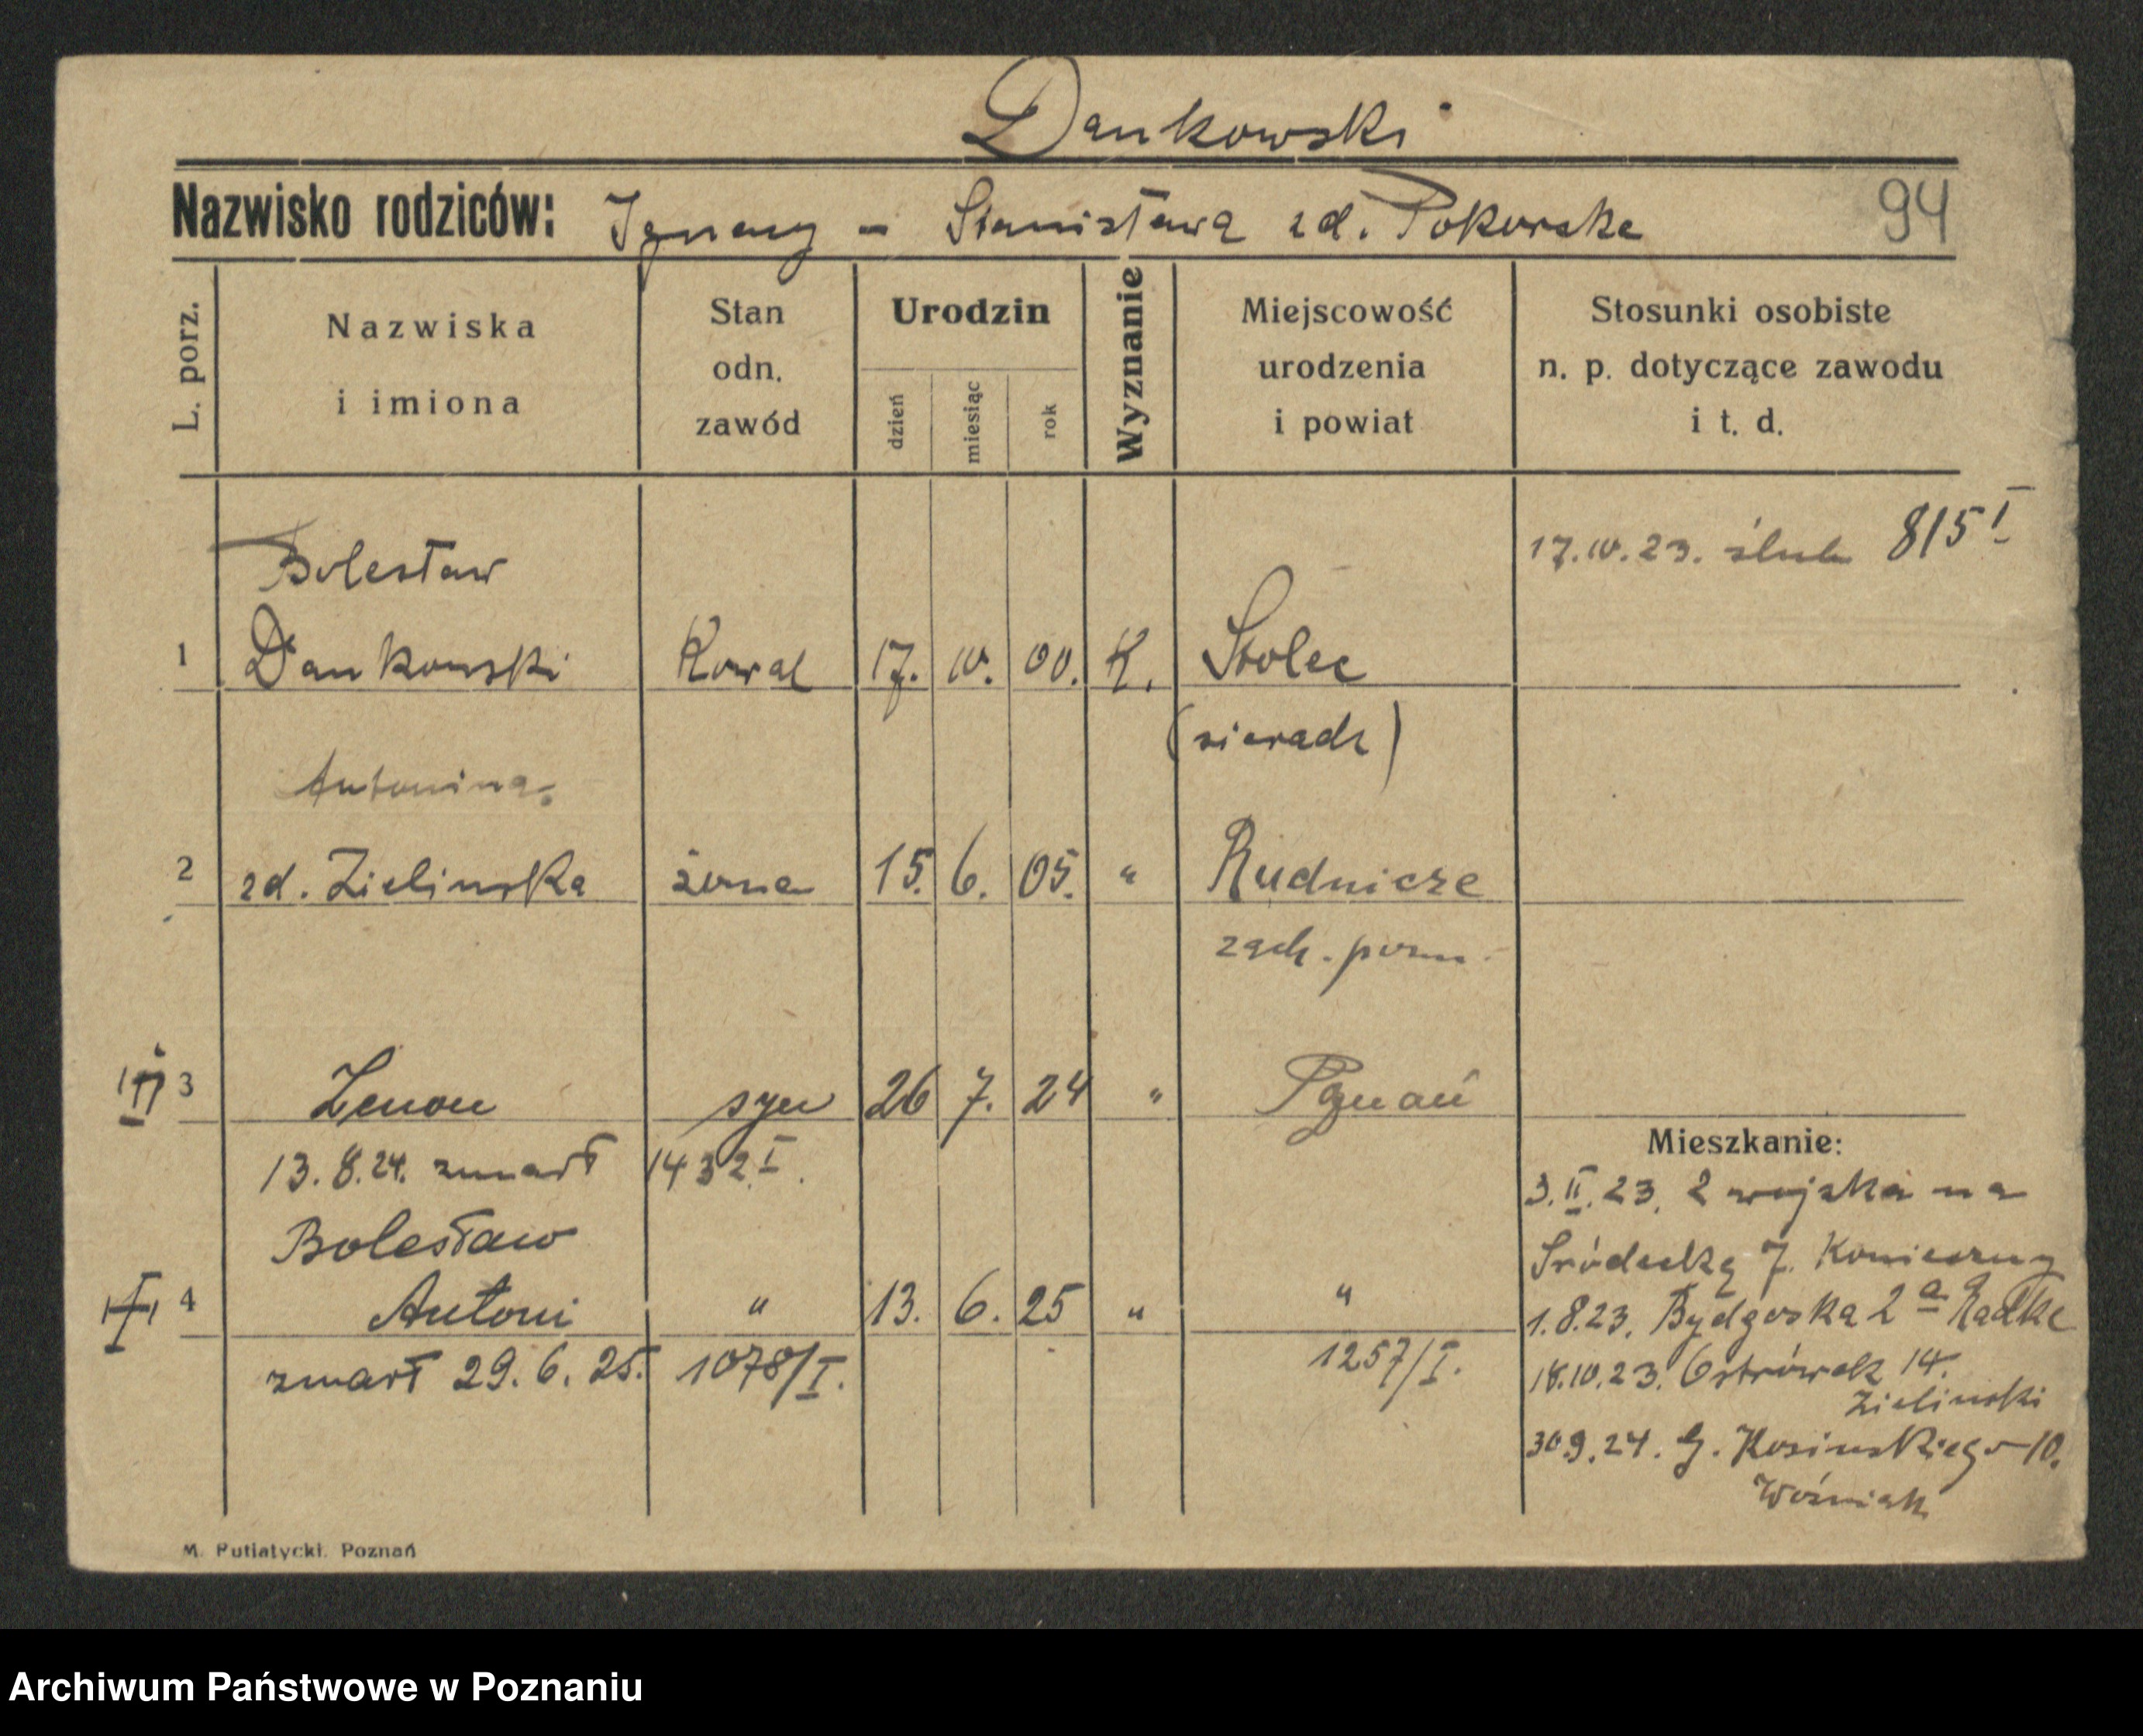 Dankowski
Nazwisko rodziców: Ignacy - Stanisława zd. Pokorska 94
L. porz.
Nazwiska
i imiona
Stan
odn.
zawód
Urodzin
dzień
miesiąc
rok
Wyznanie
Miejscowość
urodzenia
i powiat
Stosunki osobiste
n. p. dotyczące zawodu
i t. d.
17.IV.23. ślub 815 I
Bolesław
1 Dankowski Kowal 17. IV. 00. K. Stolec
(sieradz)
Antonina
2 zd. Zielinska żona 15. 6. 05. " Rudnicze
zach. pozn.
3 Zenon syn 26 7. 24 " Poznań
13.8.24. zmarł 1432 I.
Bolesław
4 Antoni " 13. 6. 25 " "
zmarł 29.6.25. 1078/I. 1257/I.
Mieszkanie:
3.II.23. z wojska na
Śródecką 7. Konieczny
1.8.23. Bydgoska 2a Radke
18.10.23. Ostrówek 14.
Zielinski
30.9.24. G. Kosinskiego 10.
Woźniak
M. Putiatycki. Poznań
Archiwum Państwowe w Poznaniu